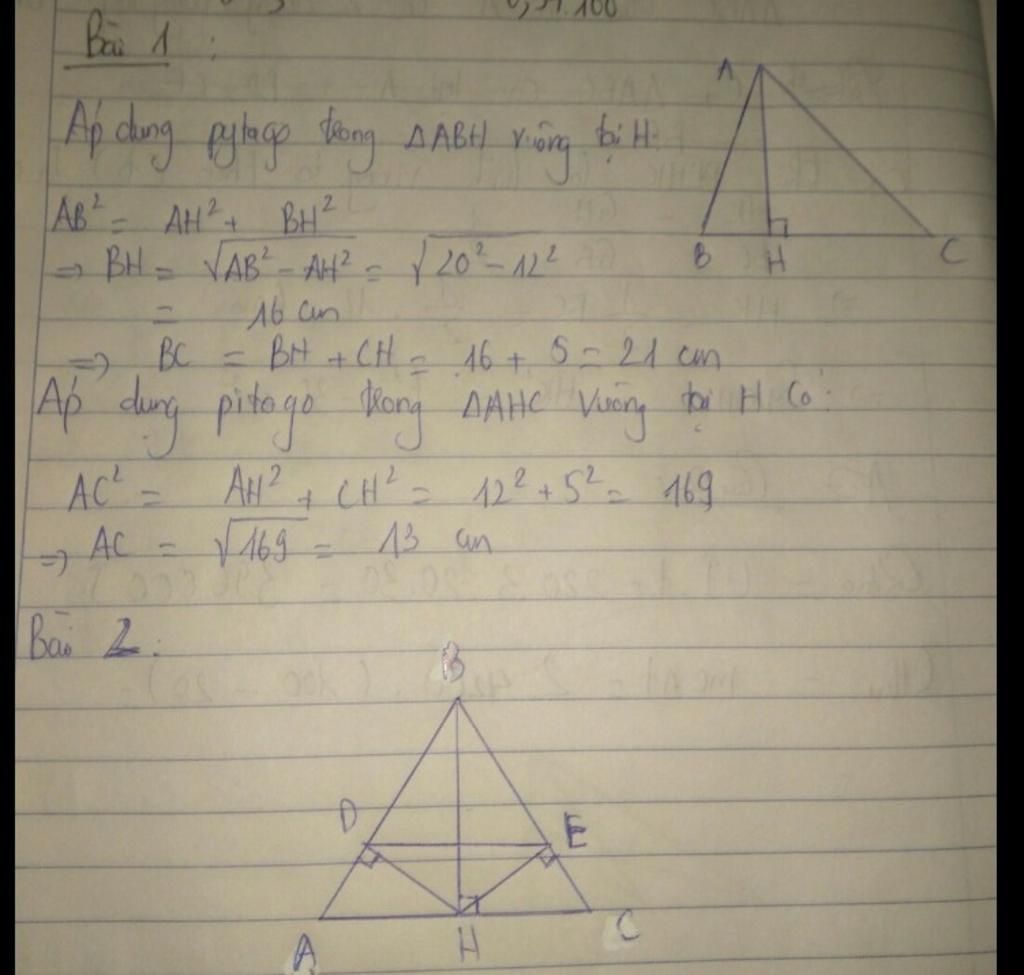 0,54.100
Bài 1:
Áp dung pytago trong ΔABH vuông tại H:
AB² = AH² + BH²
=> BH = √AB² - AH² = √20² - 12²
= 16 cm
=> BC = BH + CH = 16 + 5 = 21 cm
Áp dụng pitago trong ΔAHC vuông tại H Có:
AC² = AH² + CH² = 12² + 5² = 169
=> AC = √169 = 13 cm
A
B H C
Bài 2:
B
D E
A H C